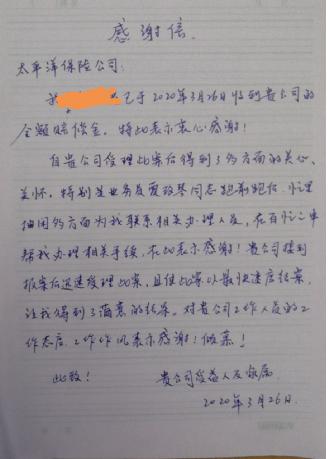 感谢信
太平洋保险公司:
我 已于2020年3月26日收到贵公司的
全额赔偿金。特此表示衷心感谢!
自贵公司受理此案后得到了多方面的关心、
关怀。特别是业务员夏 琴同志跑前跑后,忙里
抽闲多方面为我联系相关办理人员,在百忙之中
帮我办理相关手续,在此表示感谢!贵公司接到
报案后迅速受理此案,且使此案以最快速度结案,
让我得到了满意的结果。对贵公司工作人员的工
作态度、工作作风表示感谢!敬慕!
此致! 贵公司受益人及家属
2020年3月26日.